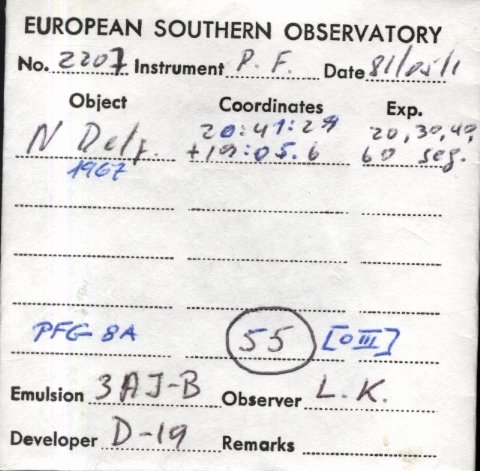 EUROPEAN SOUTHERN OBSERVATORY
No. 2207 Instrument P. F. Date 81/05/1
Object Coordinates Exp.
N Delf. 20:41:29 20, 30, 40,
1967 +19:05.6 60 seg.
PFG 8A 55 [OIII]
Emulsion 3AJ-B Observer L.K.
Developer D-19 Remarks